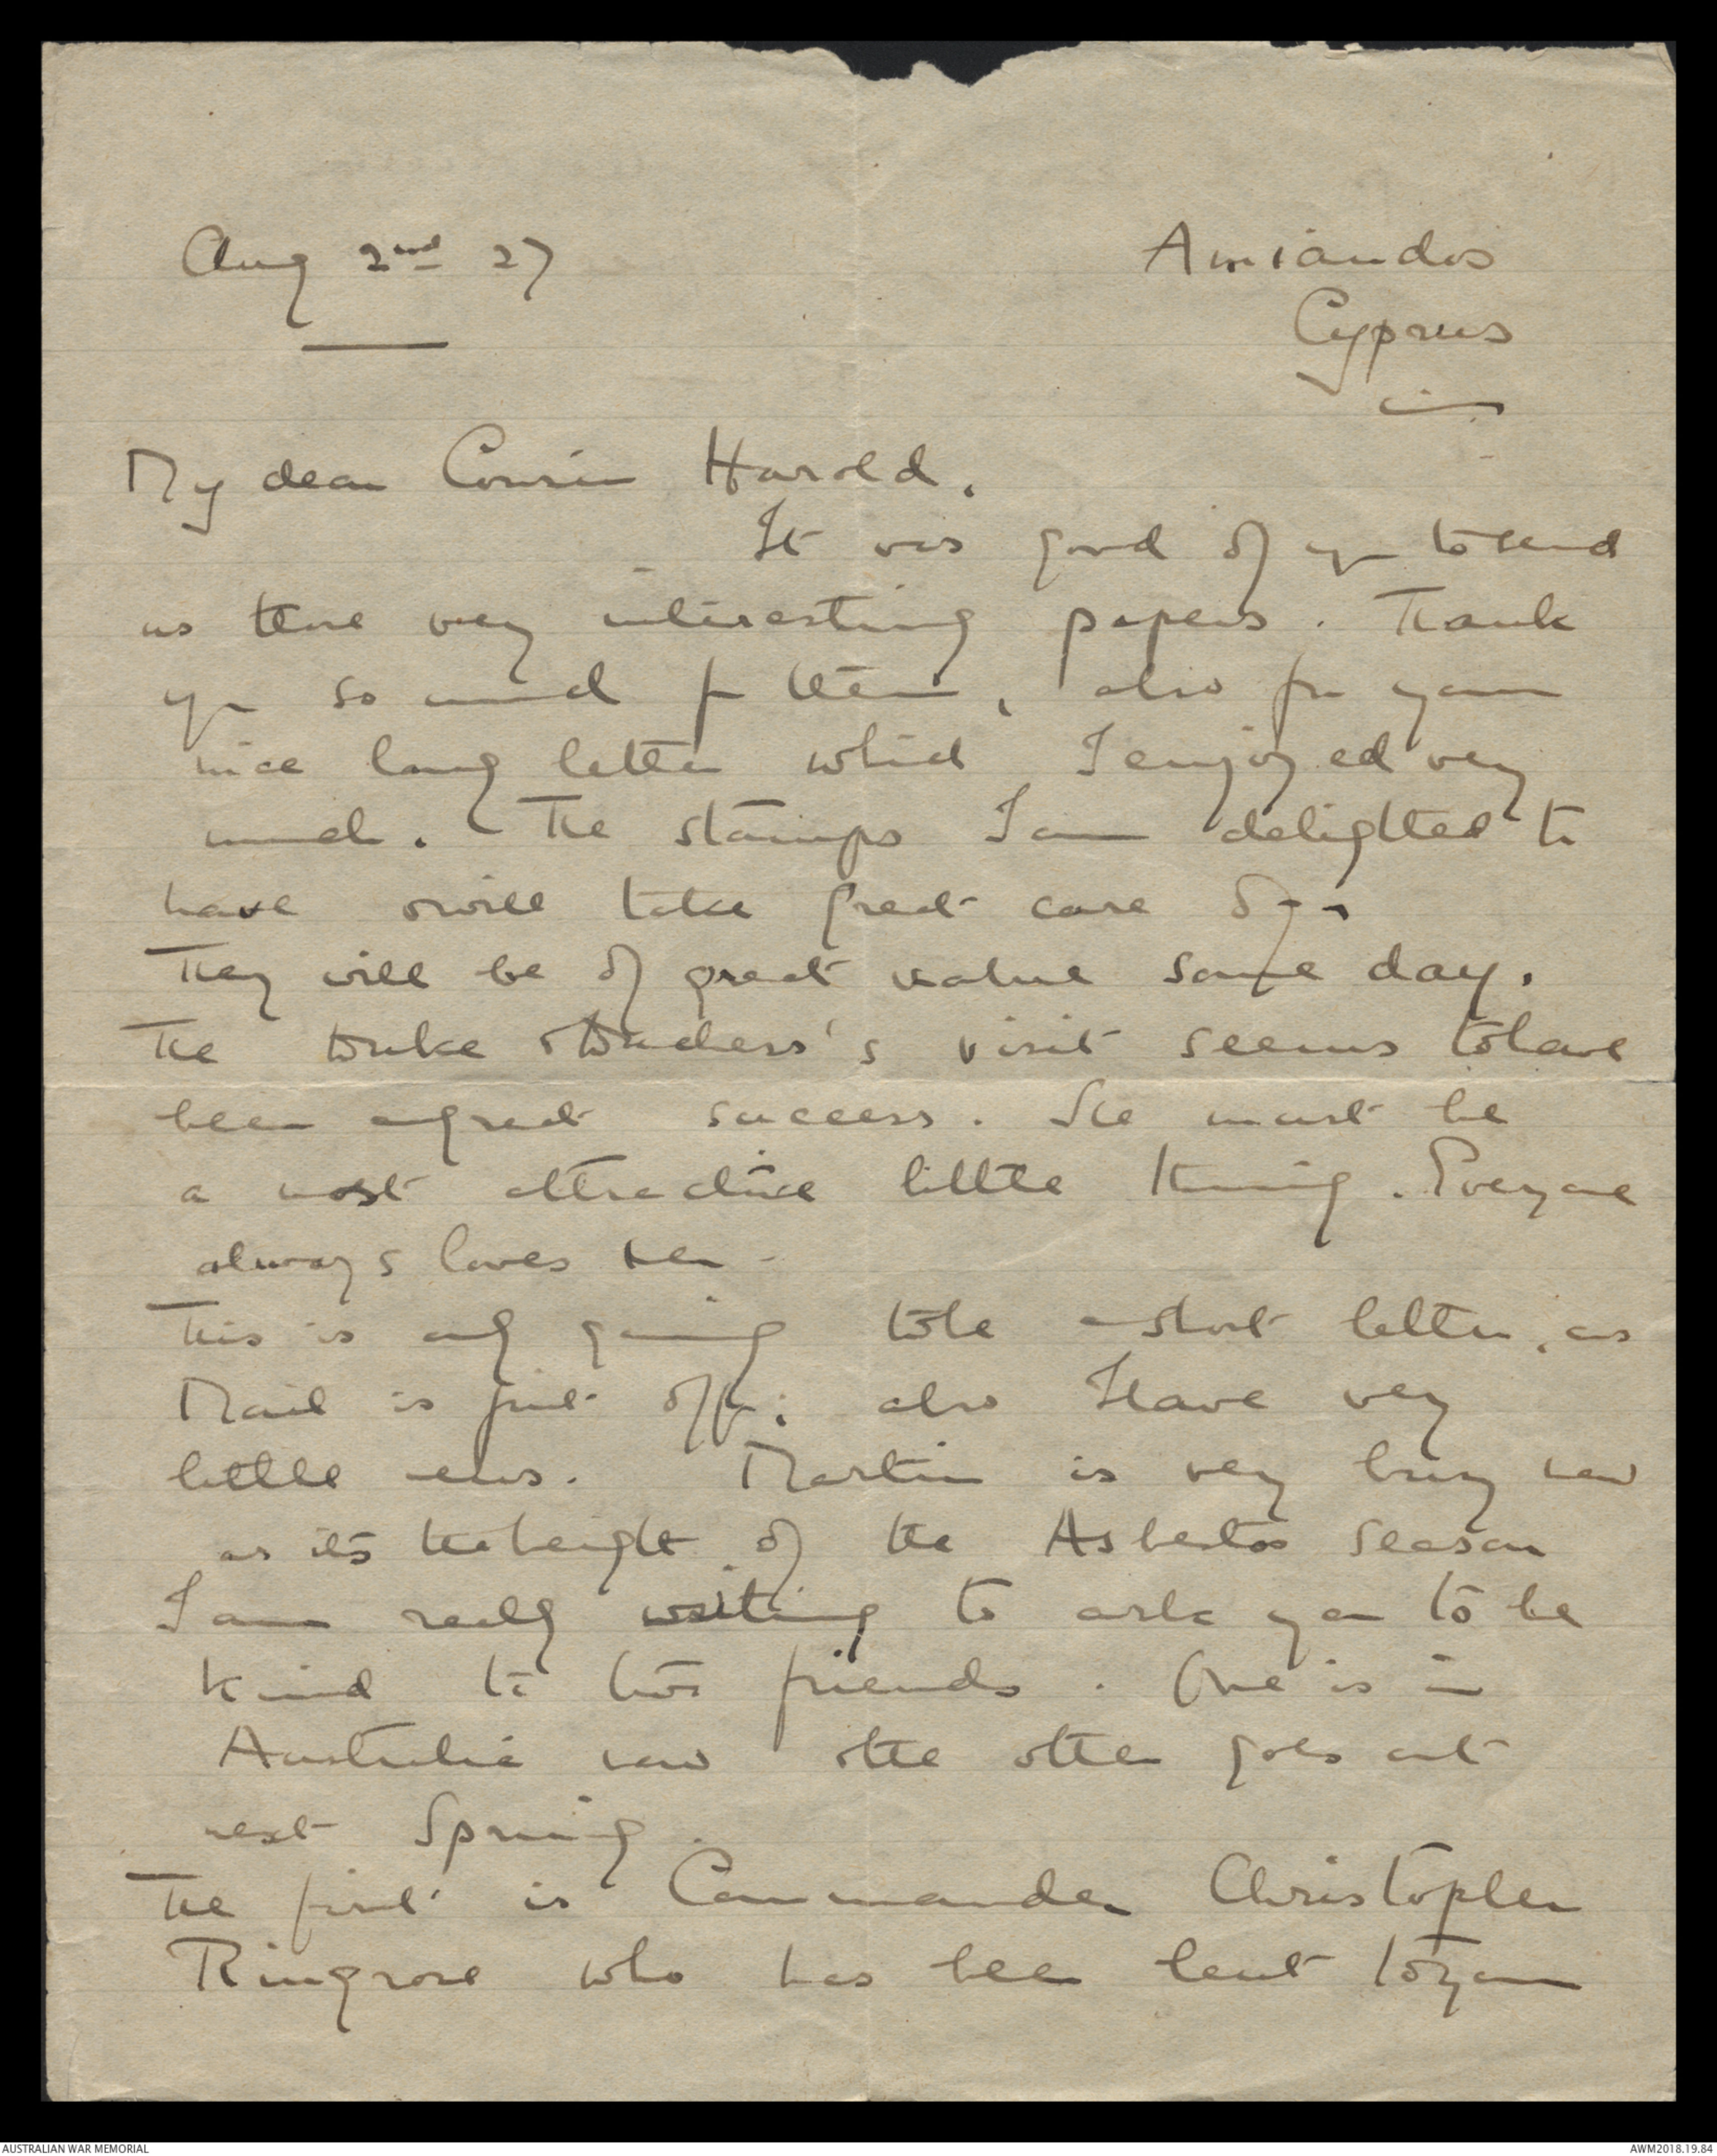 Aug 2nd 27
Amiandos
Cyprus
My dear Cousin Harold.
It was good of you to send
us those very interesting papers. Thank
you so much for them, also for your
nice long letter which I enjoyed very
much. The stamps I am delighted to
have & will take great care of
They will be of great value some day.
The Duke & Duchess's visit seems to have
been a great success. She must be
a most attractive little thing. Everyone
always loves her.
This is only going to be a short letter, as
Mail is just off; also I have very
little news. Martin is very busy now
as its the height of the Asbestos season
I am really writing to ask you to be
kind to two friends. One is in
Australia now & the other goes out
next Spring.
The first is Commander Christopher
Ringrose who has been lent to your
AUSTRALIAN WAR MEMORIAL
AWM2018.19.84